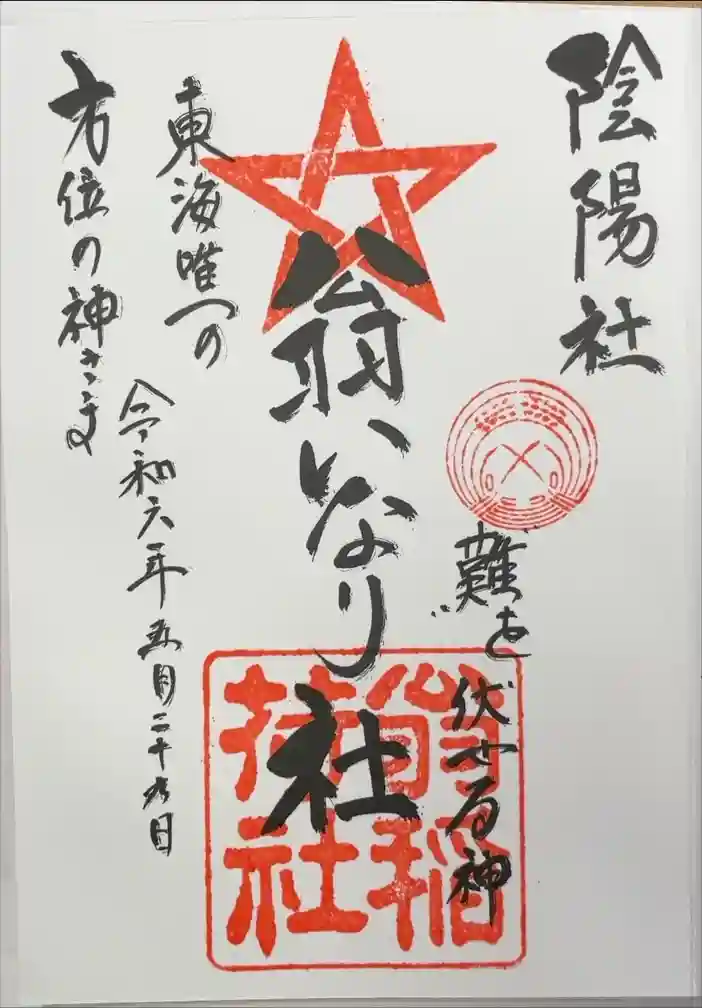 陰陽社
難を
伏せる神
翁いなり社
翁稲
荷社
東海唯一の
方位の神さま
令和六年五月二十九日